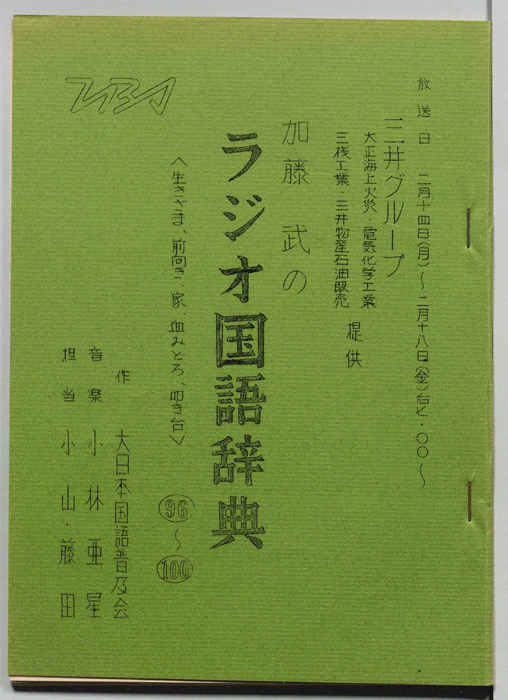 放送日 二月十四日(月)〜二月十八日(金)后七・〇〇〜
三井グループ
大正海上火災・電気化学工業
三桟工業・三井物産石油販売
提供
加藤 武の
ラジオ国語辞典
〈生きざま、前向き、家、血みどろ、叩き台〉
96〜100
作 大日本国語普及会
音楽 小林亜星
担当 小山・藤田